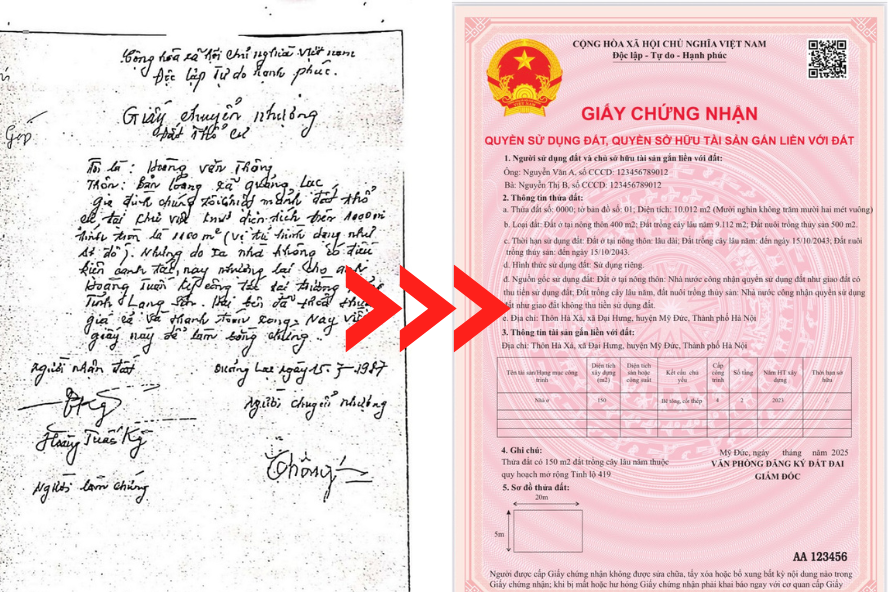 Cộng hòa xã hội chủ nghĩa Việt nam
Độc lập Tự do hạnh phúc.
Giấy chuyển nhượng
đất thổ cư
Góp
Tôi là : Hoàng văn Thông
Thôn : Bản Loỏng xã quảng Lạc
gia đình chúng tôi có mảnh đất thổ
diện tích trên 1000 m
hình tròn là 1000 m² (vị trí hình dạng như
sơ đồ). Nhưng do là nhà không có điều
kiện canh tác, nay nhường lại cho anh
Hoàng Tuấn Kỳ công tác tại
Tỉnh Lạng Sơn. Hai bên đã thỏa thuận
giá cả và thanh toán xong, Nay viết
giấy này để làm bằng chứng.
người nhận đất
Quảng Lạc ngày 15 - 7 - 1987
người chuyển nhượng
Hoàng Tuấn Kỳ
Thông
Người làm chứng
CỘNG HÒA XÃ HỘI CHỦ NGHĨA VIỆT NAM
Độc lập - Tự do - Hạnh phúc
GIẤY CHỨNG NHẬN
QUYỀN SỬ DỤNG ĐẤT, QUYỀN SỞ HỮU TÀI SẢN GẮN LIỀN VỚI ĐẤT
1. Người sử dụng đất và chủ sở hữu tài sản gắn liền với đất:
Ông: Nguyễn Văn A, số CCCD: 123456789012
Bà: Nguyễn Thị B, số CCCD: 123456789012
2. Thông tin thửa đất:
a. Thửa đất số: 0000; tờ bản đồ số: 01; Diện tích: 10.012 m2 (Mười nghìn không trăm mười hai mét vuông)
b. Loại đất: Đất ở tại nông thôn 400 m2; Đất trồng cây lâu năm 9.112 m2; Đất nuôi trồng thủy sản 500 m2.
c. Thời hạn sử dụng đất: Đất ở tại nông thôn: lâu dài; Đất trồng cây lâu năm: đến ngày 15/10/2043; Đất nuôi
trồng thủy sản: đến ngày 15/10/2043.
d. Hình thức sử dụng đất: Sử dụng riêng.
đ. Nguồn gốc sử dụng đất: Đất ở tại nông thôn: Nhà nước công nhận quyền sử dụng đất như giao đất có
thu tiền sử dụng đất; Đất trồng cây lâu năm, đất nuôi trồng thủy sản: Nhà nước công nhận quyền sử dụng
đất như giao đất không thu tiền sử dụng đất.
e. Địa chỉ: Thôn Hà Xá, xã Đại Hưng, huyện Mỹ Đức, Thành phố Hà Nội
3. Thông tin tài sản gắn liền với đất:
Địa chỉ: Thôn Hà Xá, xã Đại Hưng, huyện Mỹ Đức, Thành phố Hà Nội
Tên tài sản/Hạng mục công trình Diện tích xây dựng (m2) Diện tích sàn hoặc công suất Kết cấu chủ yếu Cấp công trình Số tầng Năm HT xây dựng Thời hạn sở hữu
Nhà ở 150 Bê tông, cốt thép 4 2 2023
4. Ghi chú:
Thửa đất có 150 m2 đất trồng cây lâu năm thuộc
quy hoạch mở rộng Tỉnh lộ 419
Mỹ Đức, ngày tháng năm 2025
VĂN PHÒNG ĐĂNG KÝ ĐẤT ĐAI
GIÁM ĐỐC
5. Sơ đồ thửa đất:
20m
5m
AA 123456
Người được cấp Giấy chứng nhận không được sửa chữa, tẩy xóa hoặc bổ sung bất kỳ nội dung nào trong
Giấy chứng nhận; khi bị mất hoặc hư hỏng Giấy chứng nhận phải khai báo ngay với cơ quan cấp Giấy